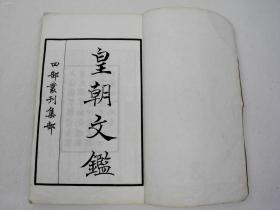 皇朝文鑑
四部叢刊集部